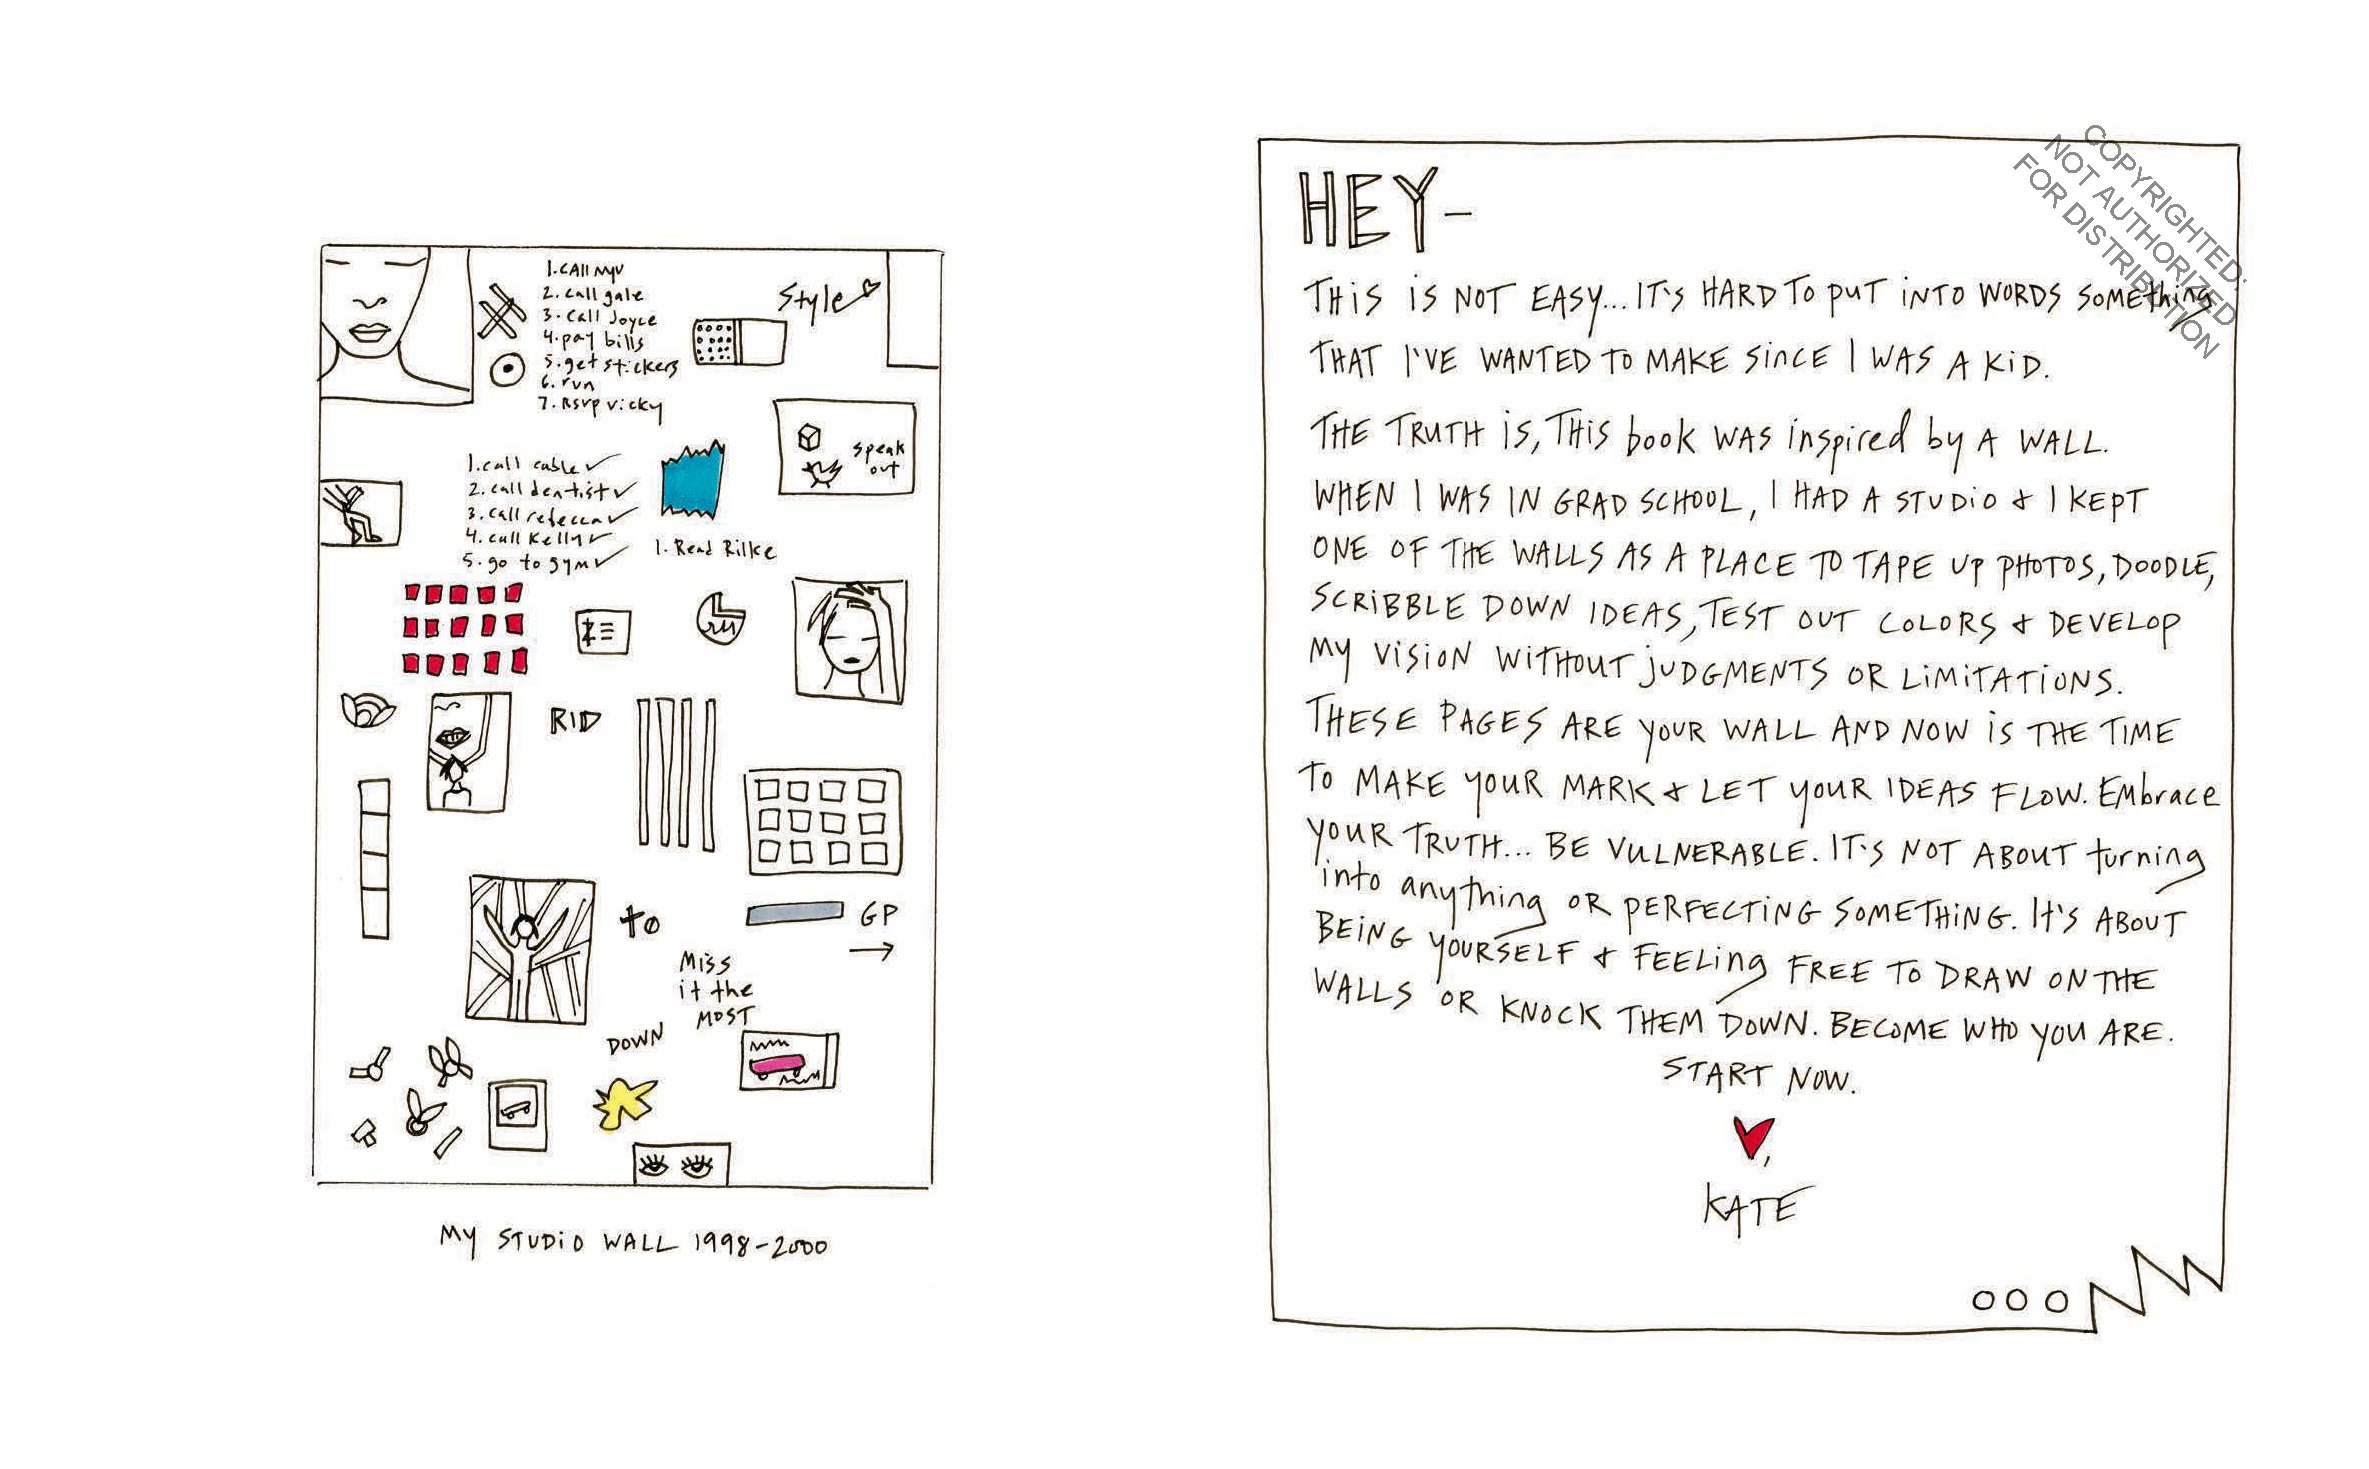 1. CAll NYU
2. call gale
3. call Joyce
4. pay bills
5. get stickers
6. run
7. RSVP vicky
Style
speak
out
1. call cable ✓
2. call dentist ✓
3. call rebecca ✓
4. call Kelly ✓
5. go to gym ✓
1. Read Rilke
RID
to
GP
→
Miss
it the
MOST
DOWN
MY STUDiO WALL 1998-2000
HEY-
THiS iS NOT EASY... IT'S HARD TO pUT iNTO WORDS SOMEthing
THAT I'VE WANTED TO MAKE SinCE I WAS A KiD.
THE TRUTH iS, THiS book WAS inspired by A WALL.
WHEN I WAS IN GRAD SCHOOL, I HAD A STUDiO & I KEPT
ONE OF THE WALLS AS A PLACE TO TAPE Up pHOTOS, DOODLE,
SCRiBBLE DOWN IDEAS, TEST OUT COLORS & DEVELOp
MY ViSiON WiTHOUT jUDGMENTS OR LiMiTATiONS.
THESE PAGES ARE YOUR WALL AND NOW iS THE TiME
TO MAKE YOUR MARK & LET YOUR IDEAS FLOW. EMbrace
YOUR TRUTH... BE VULNERABLE. IT'S NOT ABOUT turning
into anything OR pERFECTiNG SOMETHiNG. It'S ABOUT
BEiNG YOURSELF & FEELing FREE TO DRAW ON THE
WALLS OR KNOCK THEM DOWN. BECOME WHO YOU ARE.
START NOW.
♥,
KATE
COPYRIGHTED:
NOT AUTHORIZED
FOR DISTRIBUTION